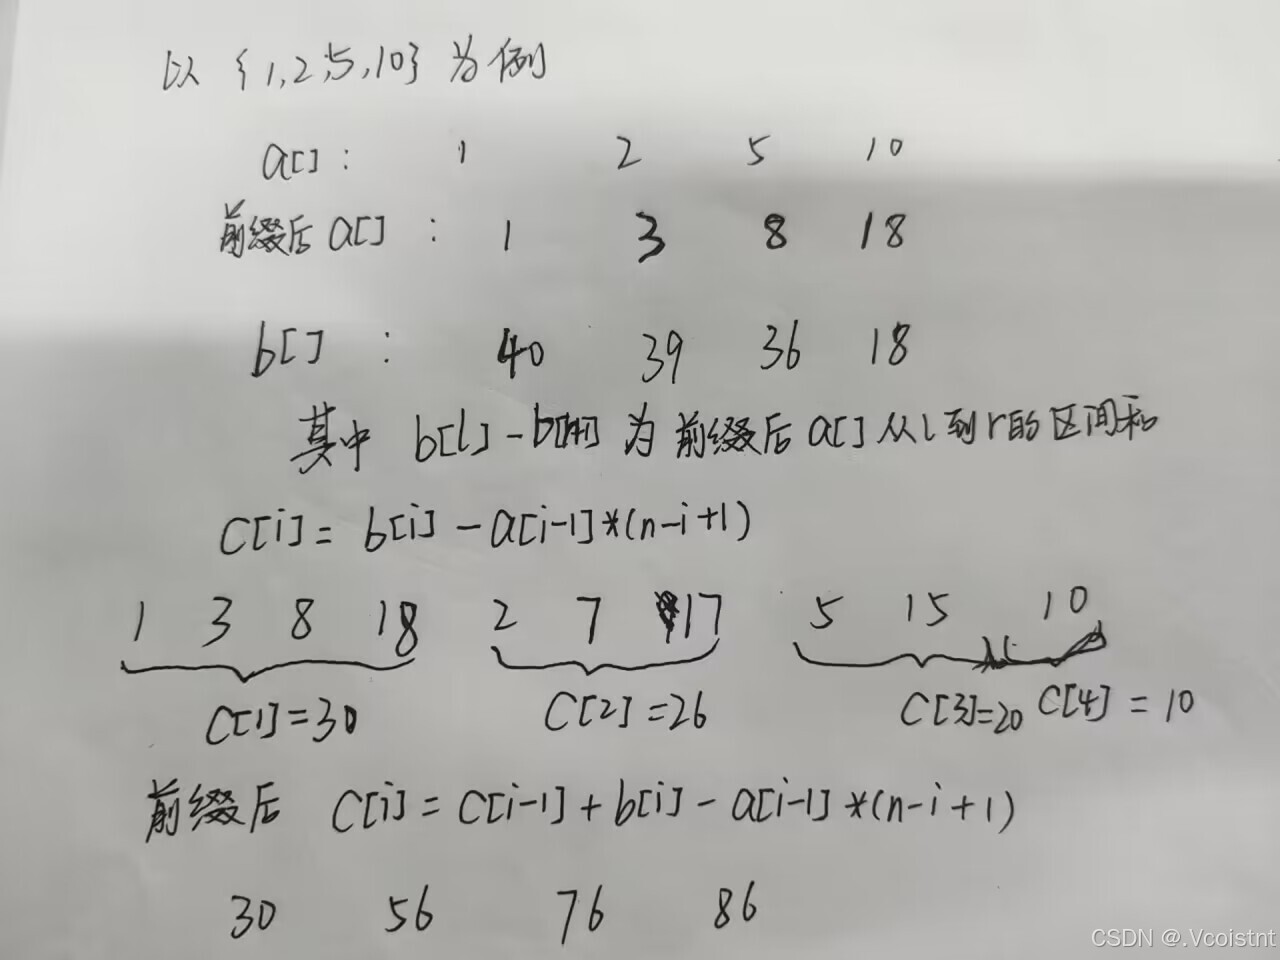 以 {1,2,5,10} 为例
a[] : 1 2 5 10
前缀后 a[] : 1 3 8 18
b[] : 40 39 36 18
其中 b[l] - b[r+1] 为 前缀后 a[] 从 l 到 r 的 区间和
C[i] = b[i] - a[i-1]*(n-i+1)
1 3 8 18 2 7 17 5 15 10
C[1]=30 C[2]=26 C[3]=20 C[4]=10
前缀后 C[i] = C[i-1] + b[i] - a[i-1]*(n-i+1)
30 56 76 86
CSDN @.Vcoistnt